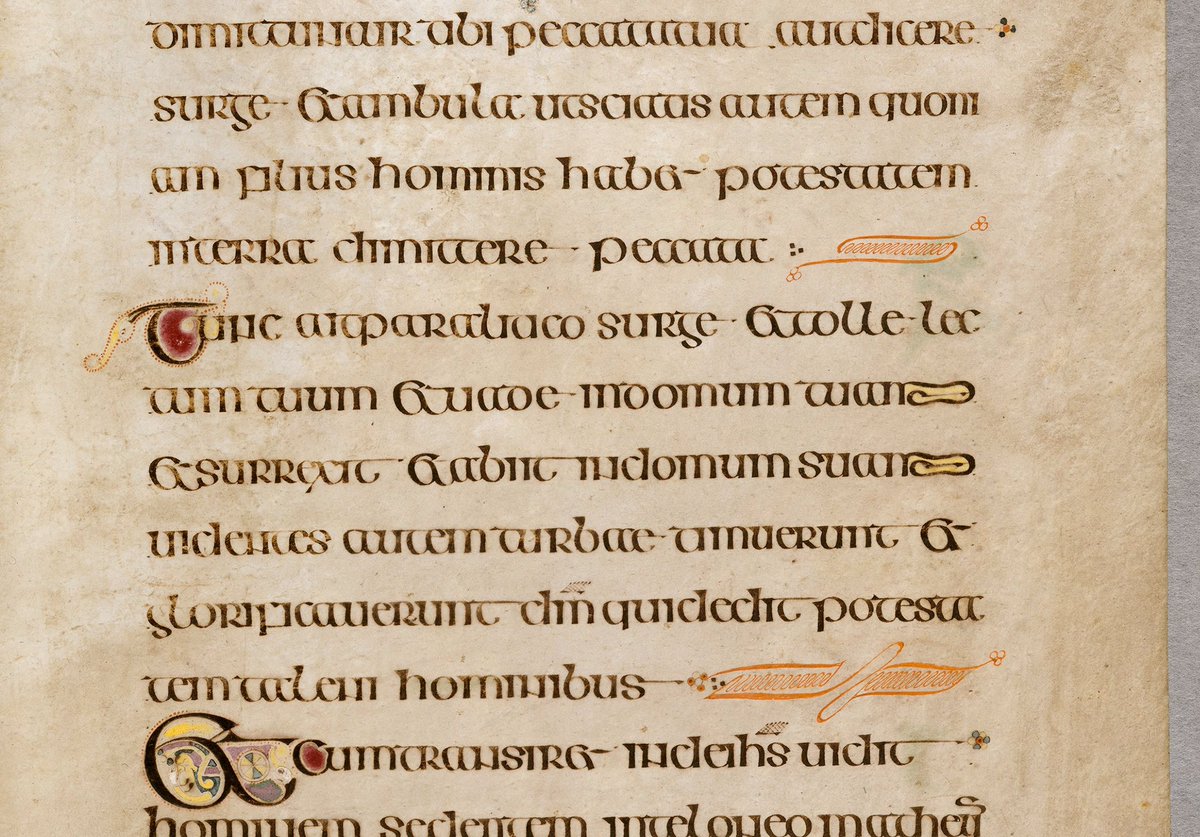 dimittuntur tibi peccata tua aut dicere
surge et ambula ut sciatis autem quoni
am filius hominis habet potestatem
in terra dimittere peccata
Tunc ait paralitico surge et tolle lec
tum tuum et uade in domum tuam
et surrexit et abiit in domum suam
uidentes autem turbae timuerunt et
glorificauerunt dm̄ qui dedit potesta
tem talem hominibus
Et cum transiret inde ihs̄ uidit
hominem sedentem in teloneo matheū